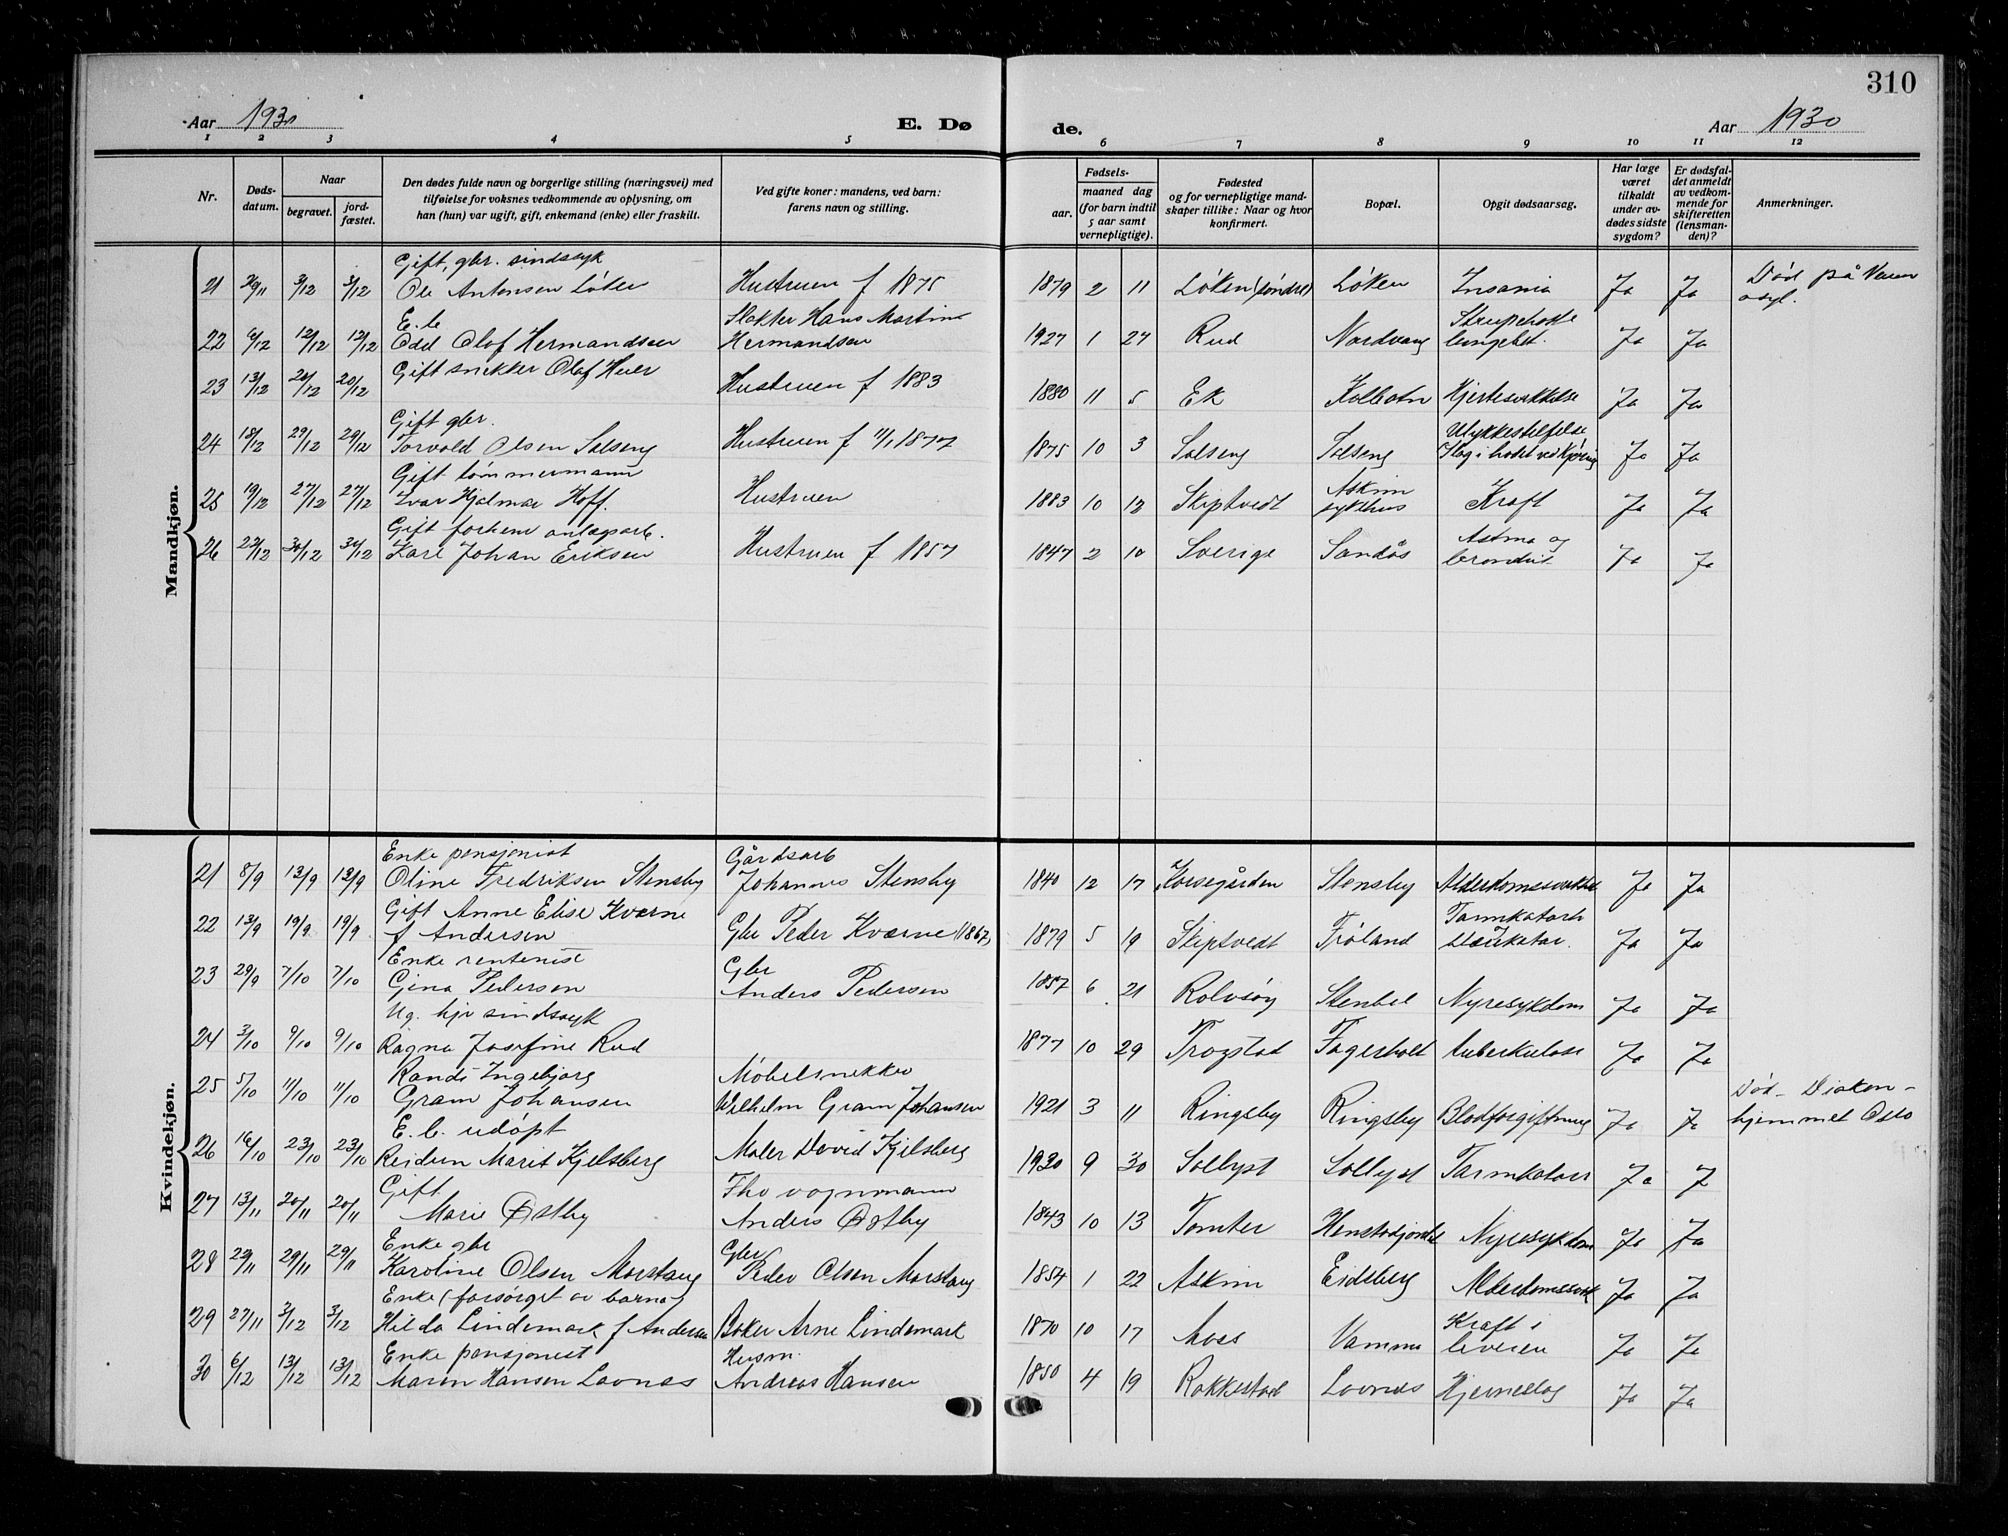 310
Aar 1930 E. Dø de. Aar 1930
1 2 3 4 5 6 7 8 9 10 11 12
Nr.
Døds-
datum.
Naar
begravet.
jord-
fæstet.
Den dødes fulde navn og borgerlige stilling (næringsvei) med
tilføielse for voksnes vedkommende av oplysning, om
han (hun) var ugift, gift, enkemand (enke) eller fraskilt.
Ved gifte koner: mandens, ved barn:
farens navn og stilling.
Fødsels-
aar.
maaned dag
(for barn indtil
5 aar samt
vernepligtige).
Fødested
og for vernepligtige mand-
skaper tillike: Naar og hvor
konfirmert.
Bopæl.
Opgit dødsaarsag.
Har læge
været
tilkaldt
under av-
dødes sidste
sygdom?
Er dødsfal-
det anmeldt
av vedkom-
mende for
skifteretten
(lensman-
den)?
Anmerkninger.
Mandkjøn.
Gift, gbr. sindssyk
21 29/11 3/12 3/12 Ole Antonsen Løken Hustruen f 1875 1879 2 11 Løken (søndre) Løken Insania Ja Ja Død på
asyl.
E. b Slakter Hans Martin
22 6/12 12/12 12/12 Odd Olof Hermandsen Hermandsen 1927 1 27 Rud Nordvang Strupehoste lungebet. Ja Ja
23 13/12 20/12 20/12 Gift snikker Olaf Huer Hustruen f 1883 1880 11 5 Ek Kolbotn Hjertesvikkelse Ja Ja
Gift gbr.
24 18/12 29/12 29/12 Torvald Olsen Solseng Hustruen f 11/1 1877 1875 10 3 Solseng Solseng Ulykkestilfelde
Slag i hodet ved kjøring Ja Ja
Gift tømmermann
25 19/12 27/12 27/12 Ivar Hjalmar Hoff. Hustruen 1883 10 12 Skiptvedt Askim
sykehus Kræft Ja Ja
Gift forhenv anlægsarb.
26 22/12 30/12 30/12 Karl Johan Eriksen Hustruen f 1857 1847 2 10 Sverige Sandås Astma og
bronkit Ja Ja
Kvindekjøn.
Enke pensjonist Gårdsarb
21 8/9 13/9 13/9 Oline Fredriksen Stensby Johannes Stensby 1840 12 17 Korsegården Stensby Alderdomssvakhet Ja Ja
Gift Anne Elise Kværne
22 13/9 19/9 19/9 f Andersen Gbr Peder Kværne (1867) 1879 5 19 Skiptvedt Frøland Tarmkatarh Ja Ja
Enke rentenist Gbr
23 29/9 7/10 7/10 Gina Pedersen Anders Pedersen 1857 6 21 Rolvsøy Stenbel Nyresykdom Ja Ja
Ug. hjv sindssyk
24 3/10 9/10 9/10 Ragna Josefine Rud 1877 10 29 Trøgstad Fagerholt tuberkulose Ja Ja
Randi Ingebjørg Møbelsnekker
25 5/10 11/10 11/10 Gram Johansen Wilhelm Gram Johansen 1921 3 11 Ringsby Ringsby Blodforgiftning Ja Ja Død Diakon-
hjemmet Oslo
E. b. udøpt
26 16/10 23/10 23/10 Reidun Marit Kjelsberg Maler David Kjelsberg 1930 9 30 Solbyst Solbyst Tarmkatarr Ja J
Gift Fhv vognmann
27 13/11 20/11 20/11 Marie Østby Anders Østby 1843 10 13 Tomter Henstadjordet Nyresykdom Ja Ja
Enke gbr Gbr
28 23/11 29/11 29/11 Karoline Olsen Morstang Peder Olsen Morstang 1854 1 22 Askim Eidsberg Alderdomssvak Ja Ja
Enke (forsørget av barna)
29 27/11 3/12 3/12 Hilda Lindemark f Andersen Baker Arne Lindemark 1870 10 17 Moss Vamma Kræft i
leveren Ja Ja
Enke pensjonist Husm.
30 6/12 13/12 13/12 Maren Hansen Lovnæs Andreas Hansen 1850 4 19 Rakkestad Lovnæs Hjerneslag Ja Ja